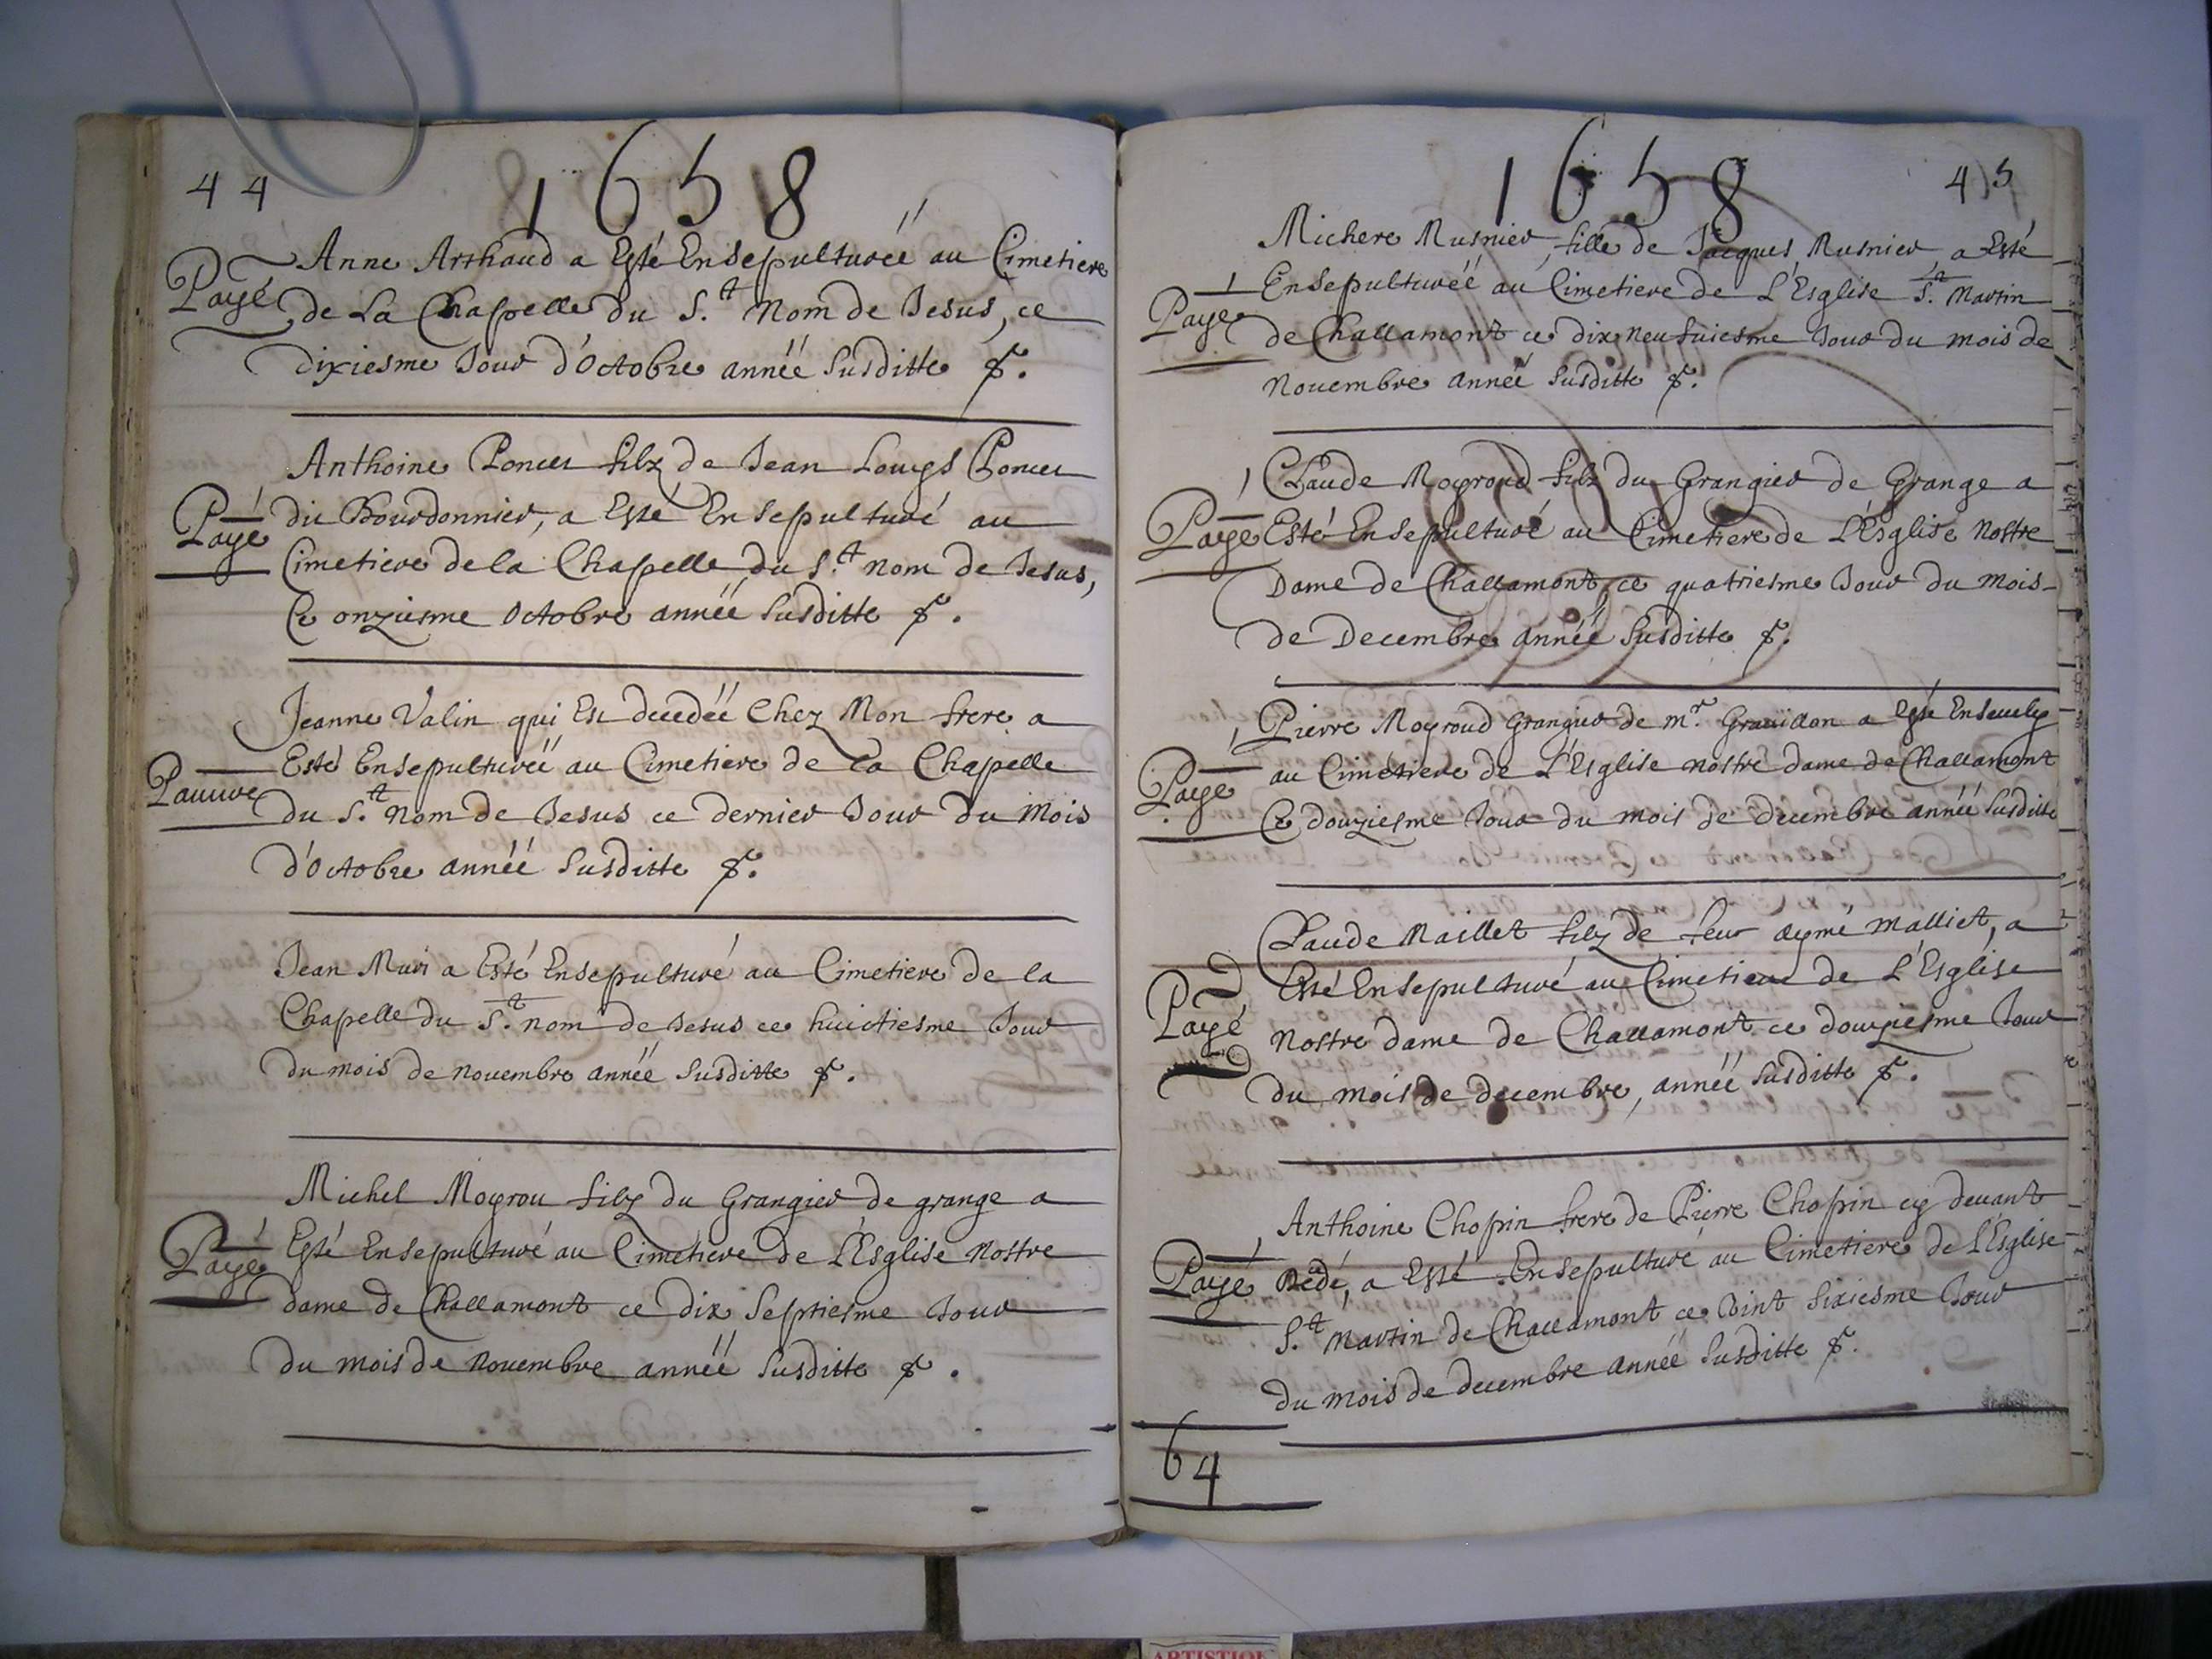 44
1658
Payé
Anne Arthaud a Esté Ensepulturéé au Cimetiere
de La Chappelle du S.t Nom de Jesus, ce
dixiesme Jour d'Octobre annéé susditte &.
Anthoine Poncet filz de Jean Louys Poncet
Payé
du Bourdonnier, a Esté Ensepulturé au
Cimetiere de la Chapelle du S.t nom de Jesus,
Ce onziesme Octobre annéé susditte &.
Jeanne Valin qui Est decedéé Chez Mon frere a
Pauure
Esté Ensepulturéé au Cimetiere de la Chapelle
du S.t Nom de Jesus ce dernier Jour du Mois
d'Octobre annéé susditte &.
Jean Muri a Esté Ensepulturé au Cimetiere de la
Chapelle du S.t nom de Jesus ce huictiesme Jour
du mois de nouembre annéé susditte &.
Michel Moyrou filz du Grangier de grange a
Payé
Esté Ensepulturé au Cimetiere de L'Esglise Nostre
dame de Challamont ce dix septiesme Jour
du mois de Nouembre annéé susditte &.
1658
45
Michere Musnier, fille de Jacques Musnier, a Esté
Payé
Ensepulturéé au Cimetiere de L'Esglise S.t Martin
de Challamont ce dix neufuiesme Jour du mois de
Nouembre annéé susditte &.
Claude Moyroud filz du Grangier de Grange a
Payé
Esté Ensepulturé au Cimetiere de L'Esglise Nostre
Dame de Challamont, ce quatriesme Jour du Mois
de Decembre annéé susditte &.
Pierre Moyroud Grangier de m.r a Esté Enseuely
Payé
au Cimetiere de L'Esglise nostre dame de Challamont
Ce douziesme Jour du mois de decembre annéé susditte
Claude Maillet filz de feu aymé Malliet, a
Payé
Esté Ensepulturé au Cimetiere de L'Esglise
Nostre dame de Challamont ce douziesme Jour
du mois de decembre, annéé susditte &.
Anthoine Chopin frere de Pierre Chopin cy deuant
Payé
a Esté Ensepulturé au Cimetiere de L'Esglise
S.t Martin de Challamont ce Vint sixiesme Jour
du mois de decembre annéé susditte &.
64